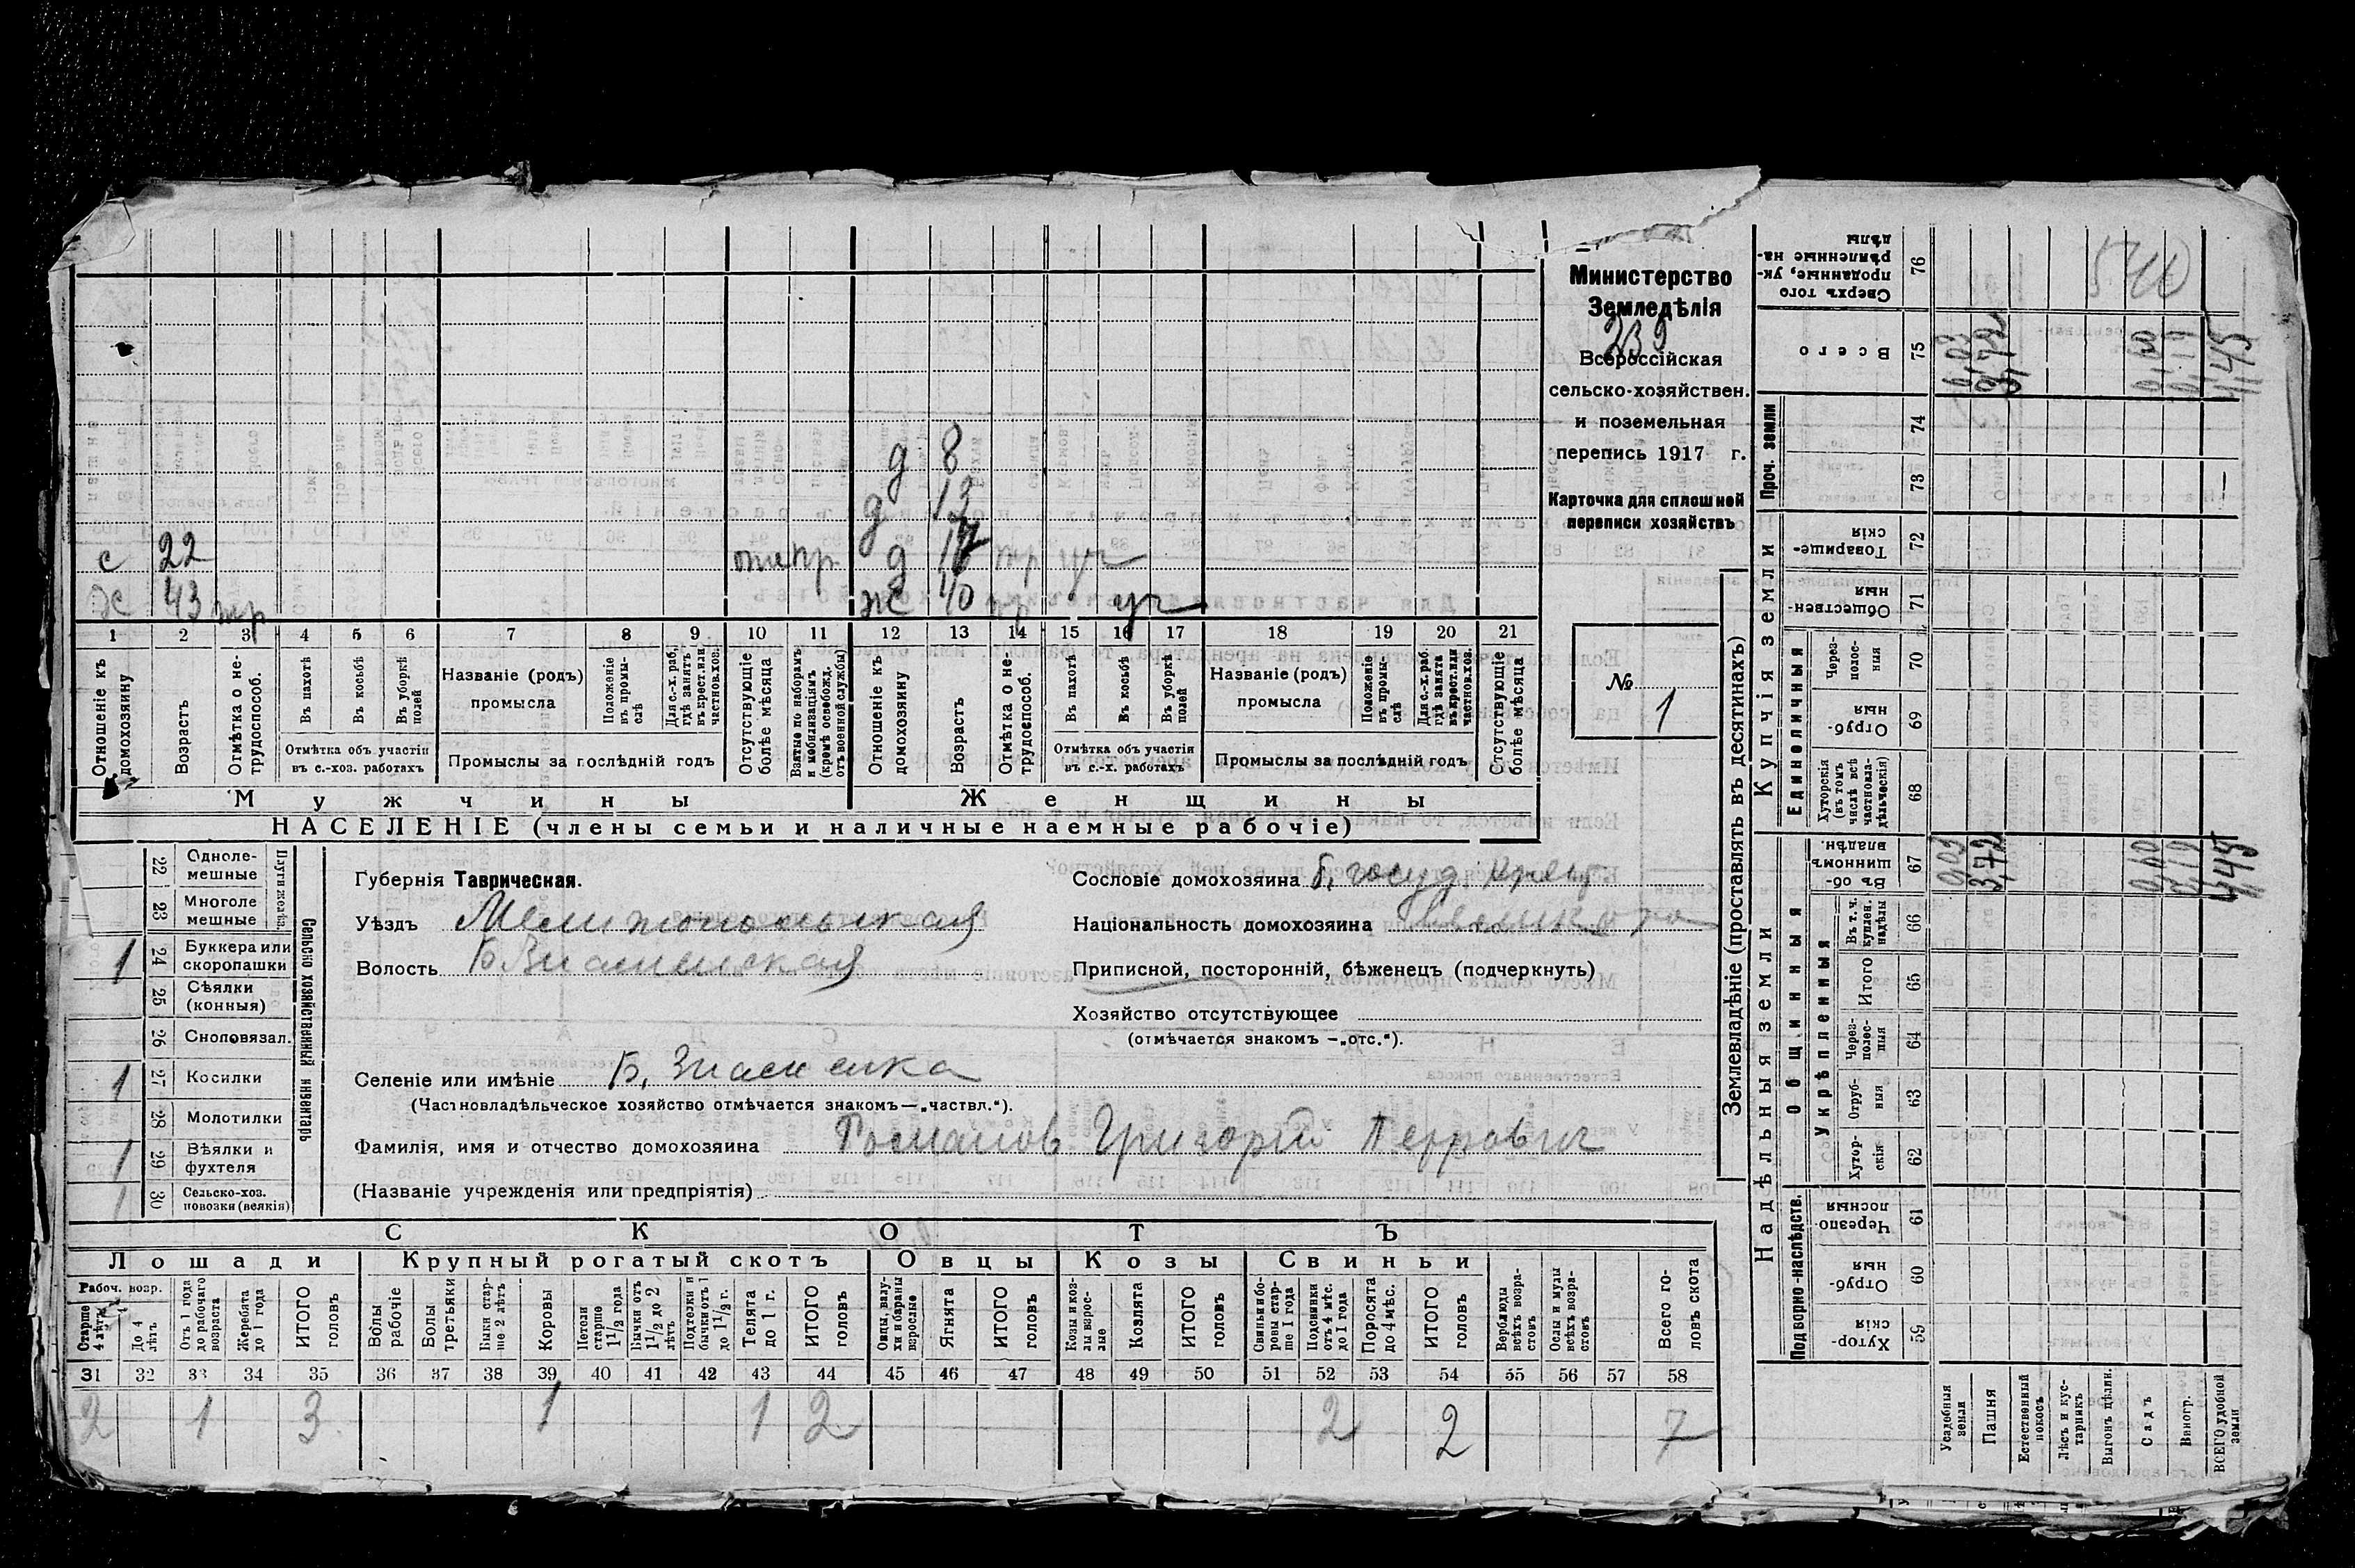 Министерство
Земледѣлія
239
Всероссійская
сельско-хозяйствен.
и поземельная
перепись 1917 г.
Карточка для сплошной
переписи хозяйствъ
№ 1
д 8
д 13
с 22 д
ж 40
43
1 2 3 4 5 6 7 8 9 10 11 12 13 14 15 16 17 18 19 20 21
Отношеніе къ домохозяину
Возрастъ
Отмѣтка о нетрудоспособ.
Въ пахотѣ
Въ косьбѣ
Въ уборкѣ полей
Отмѣтка объ участіи въ с.-хоз. работахъ
Названіе (родъ) промысла
Положеніе въ промыслѣ
Для с.-х. раб. гдѣ занятъ въ крест. или частнов. хоз.
Промыслы за послѣдній годъ
Отсутствующіе болѣе мѣсяца
Взятые по наборамъ и мобилизаціямъ (кромѣ освобожд. отъ военной службы)
Отношеніе къ домохозяину
Возрастъ
Отмѣтка о нетрудоспособ.
Въ пахотѣ
Въ косьбѣ
Въ уборкѣ полей
Отмѣтка объ участіи въ с.-х. работахъ
Названіе (родъ) промысла
Положеніе въ промыслѣ
Для с.-х. раб. гдѣ занята въ крест. или частнов. хоз.
Промыслы за послѣдній годъ
Отсутствующіе болѣе мѣсяца
Мужчины Женщины
НАСЕЛЕНІЕ (члены семьи и наличные наемные рабочіе)
Сельско хозяйственный инвентарь
22 Однолемешные
23 Многолемешные
1 24 Буккера или скоропашки
25 Сѣялки (конныя)
26 Сноповязал.
1 27 Косилки
28 Молотилки
1 29 Вѣялки и фухтеля
1 30 Сельско-хоз. повозки (всякія)
Губернія Таврическая.
Уѣздъ Мелитопольская
Волость Б. Знаменская
Селеніе или имѣніе Б. Знаменка
(Частновладѣльческое хозяйство отмѣчается знакомъ—„частвл.“).
Фамилія, имя и отчество домохозяина Романов Григорій Петрович
(Названіе учрежденія или предпріятія)
Сословіе домохозяина б. госуд крест
Національность домохозяина
Приписной, посторонній, бѣженецъ (подчеркнуть)
Хозяйство отсутствующее
(отмѣчается знакомъ —„отс.“).
СКОТЪ
Лошади Крупный рогатый скотъ Овцы Козы Свиньи
Рабоч. возр.
Старше 4 лѣтъ
До 4 лѣтъ
Отъ 1 года до рабочаго возраста
Жеребята до 1 года
ИТОГО головъ
Волы рабочіе
Волы третьяки
Быки старше 2 лѣтъ
Коровы
Нетели старше 1 1/2 года
Бычки отъ 1 1/2 до 2 лѣтъ
Подтелки и бычки отъ 1 до 1 1/2 г.
Телята до 1 г.
ИТОГО головъ
Овцы, валухи и бараны взрослые
Ягнята
ИТОГО головъ
Козы и козлы взрослые
Козлята
ИТОГО головъ
Свиньи и боровы старше 1 года
Подсвинки отъ 4 мѣс. до 1 года
Поросята до 4 мѣс.
ИТОГО головъ
Верблюды всѣхъ возрастовъ
Ослы и мулы всѣхъ возрастовъ
Всего головъ скота
31 32 33 34 35 36 37 38 39 40 41 42 43 44 45 46 47 48 49 50 51 52 53 54 55 56 57 58
2 1 3 1 1 2 2 2 7
Землевладѣніе (проставлять въ десятинахъ)
Надѣльныя земли Купчія земли Проч. земли
Подворно-наслѣдств.
Общинныя
Укрѣпленныя
Единоличныя
Хуторскія 59
Отрубныя 60
Черезполосныя 61
Хуторскія 62
Отрубныя 63
Черезполосныя 64
Итого 65
Въ т. ч. куплен. надѣлы 66
Въ общинномъ владѣн. 67
Хуторскія (въ томъ числѣ всѣ частновладѣльческія) 68
Отрубныя 69
Черезполосныя 70
Общественныя 71
Товарищескія 72
73
74
Всего 75
Сверхъ того проданные, укрѣпленные надѣлы 76
Усадебныя земли
Пашня 3,72 3,72
Естественный покосъ
Лѣсъ и кустарникъ
Выгонъ цѣлин.
Садъ
Виногр.
ВСЕГО удобной земли 4,45 4,45